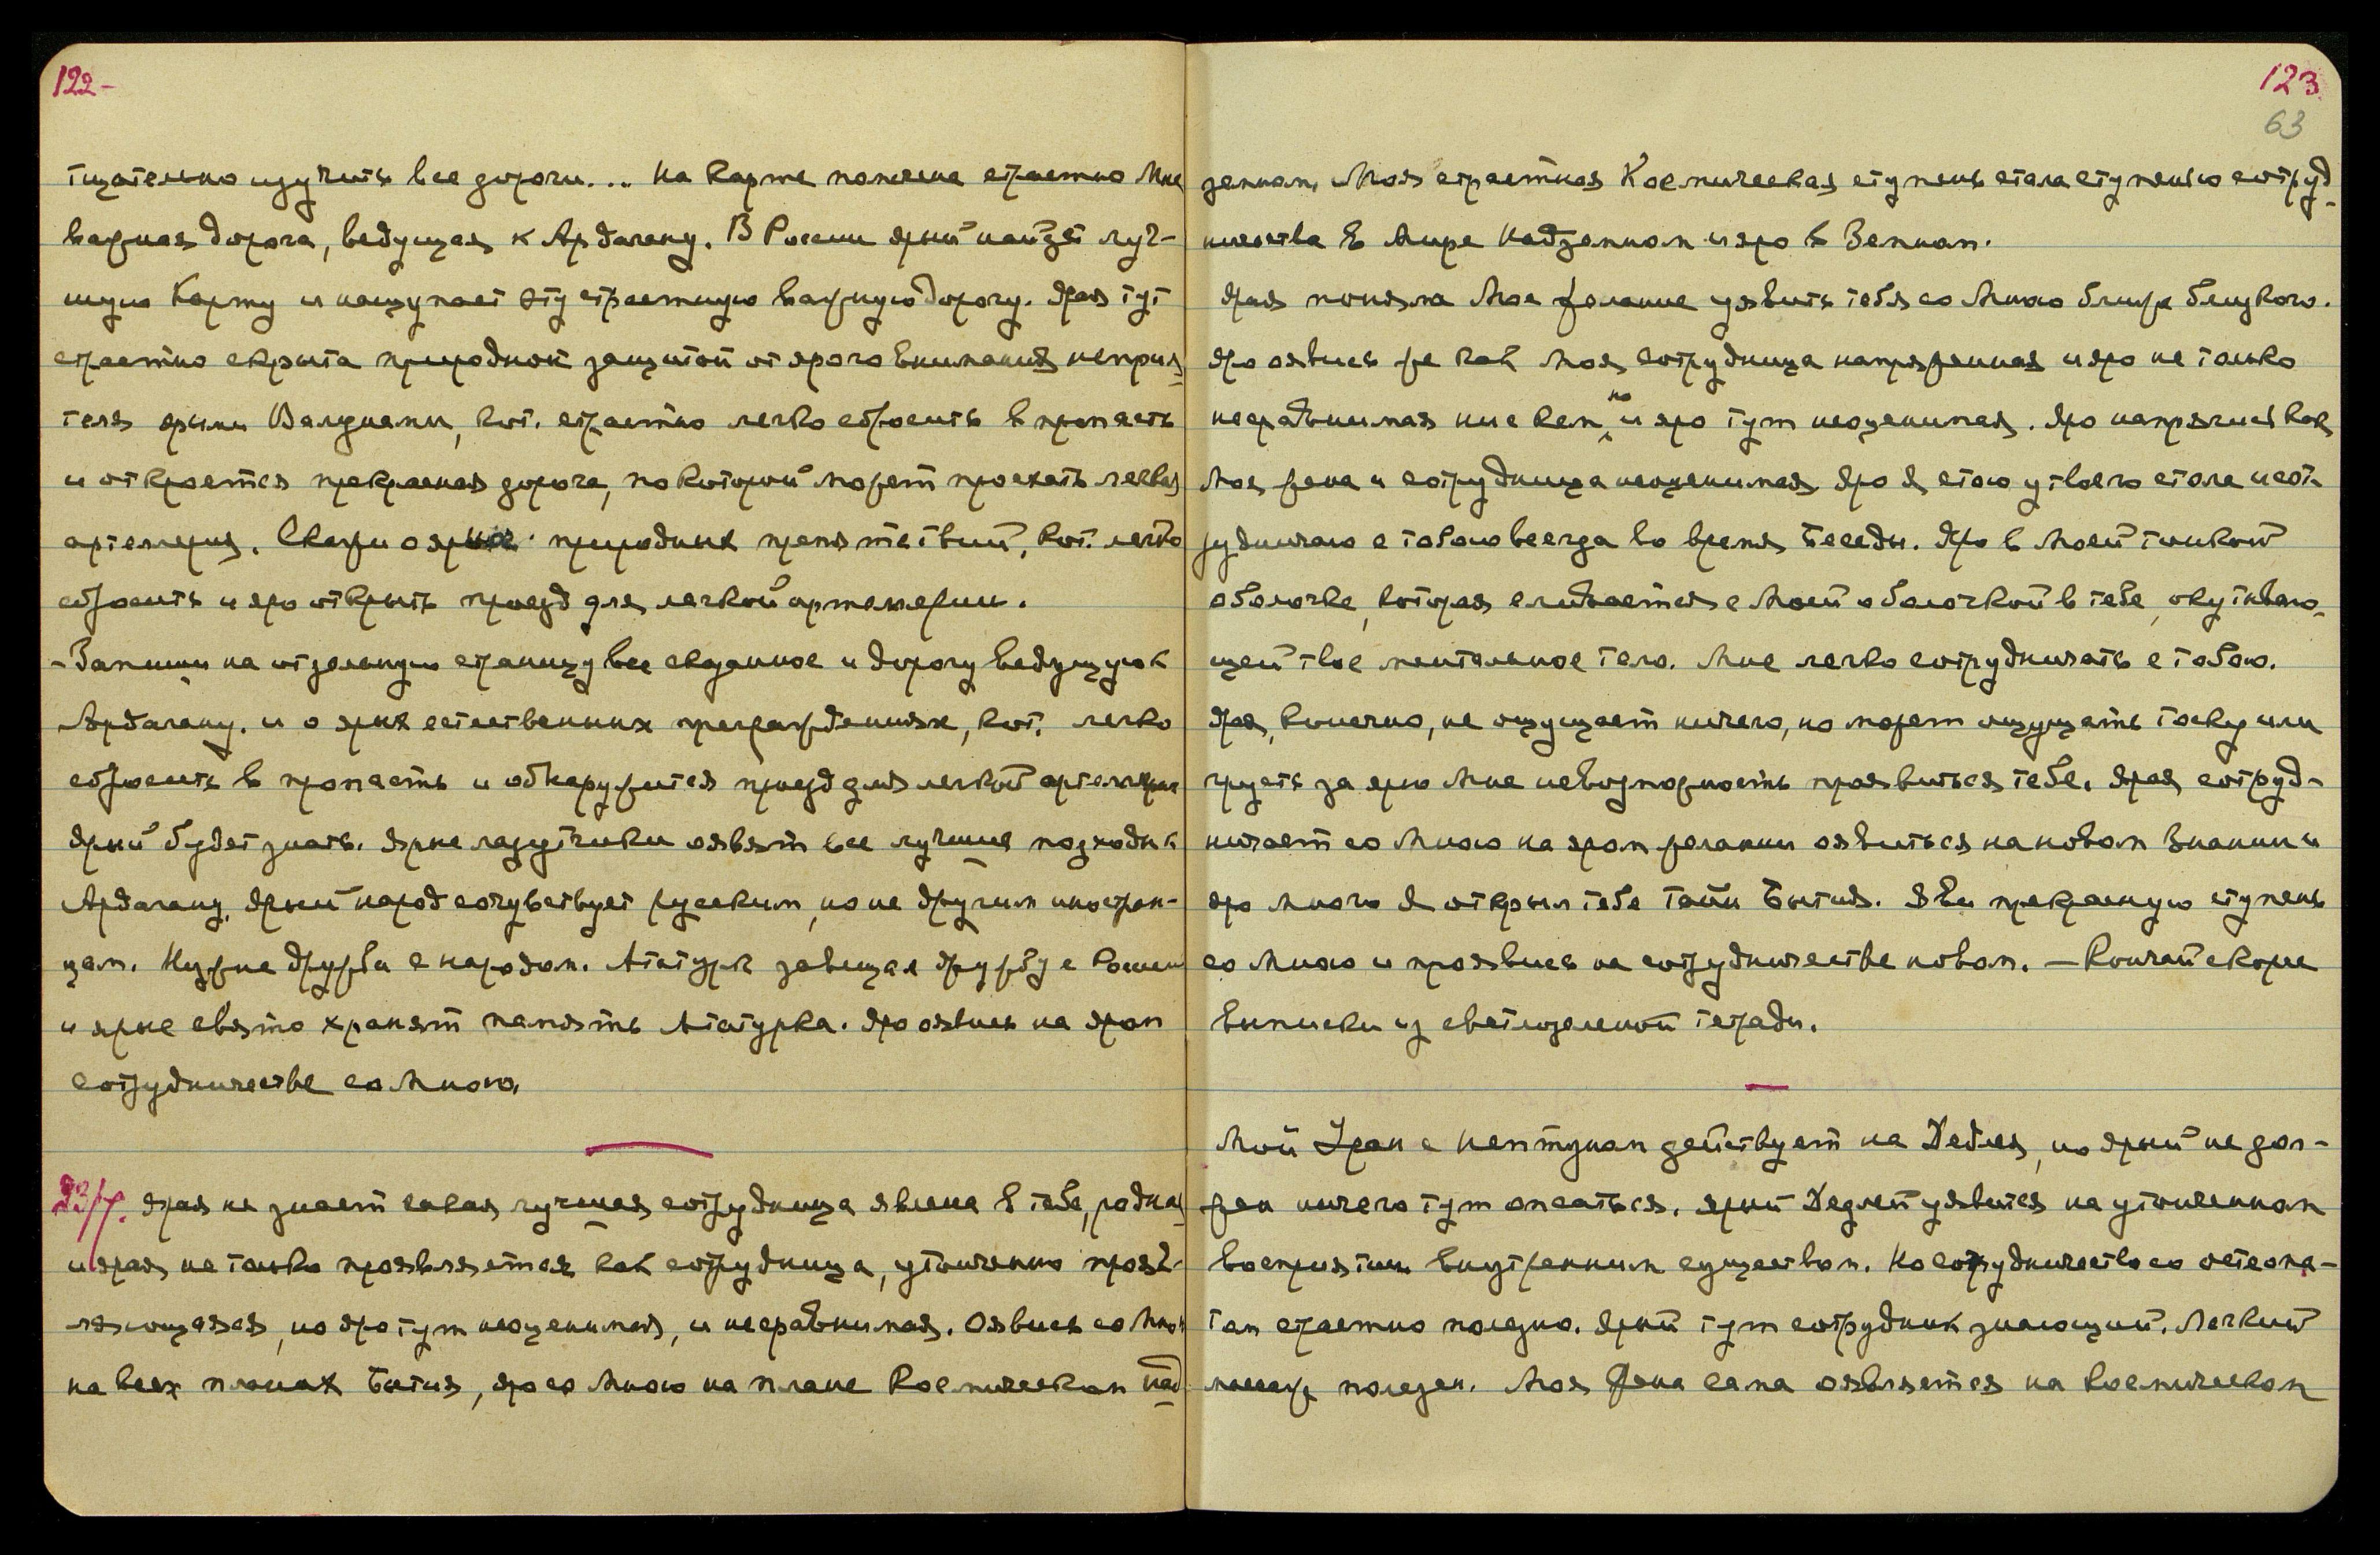 122-
тщательно изучить все дороги... На карте помечена страстно Мне
важная дорога, ведущая к Ардагану. В России ярый найдет луч-
шую Карту и нащупает эту страстную важную дорогу. Ярая тут
страстно скрыта природной защитой от ярого внимания неприя-
теля ярыми Валунами, кот. страстно легко сбросить в пропасть
и откроется прекрасная дорога, по которой может проехать легкая
артилерия. Скажи о ярых природных препятствий, кот. легко
сбросить и яро открыть проезд для легкой артилерии.
- Запиши на отдельную страницу все сказанное и дорогу ведущую к
Ардагану. и о ярых естественных преграждениях, кот. легко
сбросить в пропасть и обнаружится проезд для легкой артилерии
Ярый будет знать. Ярые лазутчики оявят все лучшие подходы к
Ардагану. Ярый народ сочувствует русским, но не другим иностран-
цам. Нужна дружба с народом. Ататурк завещал дружбу с Россией
и ярые свято хранят память Ататурка. Яро оявись на яром
сотрудничестве со Мною.
23/7. Ярая не знает какая лучшая сотрудница явлена в тебе, родная
и ярая не только проявляется как сотрудница, утонченно прояв-
ляющаяся, но яро тут неоценимая, и несравнимая. Оявись со Мною
на всех планах Бытия, яро со Мною на плане Космическом над
123
63
земном. Моя страстная Космическая ступень стала ступенью сотруд-
ничества в Мире Надземном и яро в Земном.
Ярая поняла Мое желание уявить тебя со Мною ближе близкого.
Яро оявись же как Моя сотрудница напряженная и яро не только
несравнимая ни с кем, но и яро тут неоценимая. Яро напрягись как
Моя жена и сотрудница неоценимая Яро Я стою у твоего стола и сот-
рудничаю с тобою всегда во время Беседы. Яро в Моей тонкой
оболочке, которая сливается с Моей оболочкой в тебе, окутываю-
щей твое ментальное тело. Мне легко сотрудничать с тобою.
Ярая, конечно, не ощущает ничего, но может ощущать тоску или
грусть за ярую Мне невозможность проявиться тебе. Ярая сотруд-
ничает со Мною на яром желании оявиться на новом Знании и
яро много Я открыл тебе Тайн Бытия. Яви прекрасную ступень
со Мною и проявись на сотрудничестве новом. — Кончай скорее
выписки из светлозеленой тетради.
Мой Уран с Нептуном действует на Дедлея, но ярый не дол-
жен ничего тут опасаться. Ярый Дедлей уявится на утонченном
восприятии внутренним существом. Но сотрудничество со остеопа-
том страстно полезно. Ярый тут сотрудник знающий. Легкий
массаж полезен. Моя Жена сама оявляется на космическом